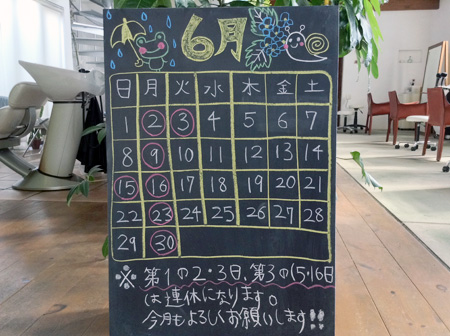 6月
日 月 火 水 木 金 土
1 2 3 4 5 6 7
8 9 10 11 12 13 14
15 16 17 18 19 20 21
22 23 24 25 26 27 28
29 30
※ 第1の2・3日、第3の15・16日
は連休になります。
今月もよろしくお願いします!!